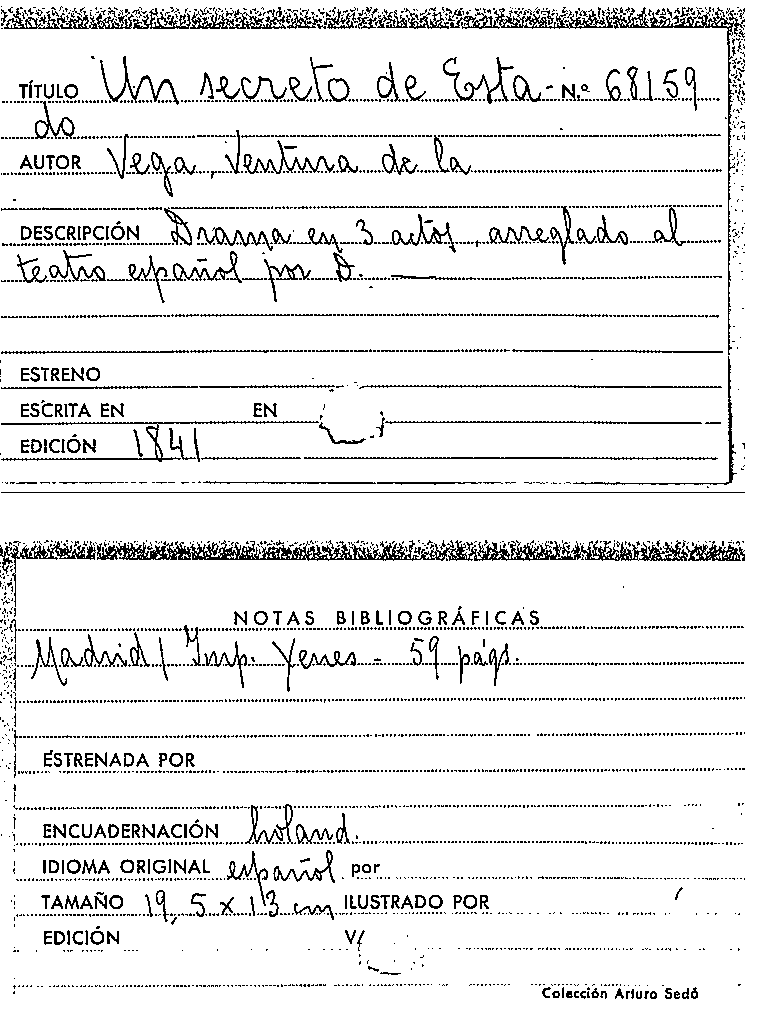 TÍTULO Un secreto de Esta- N.º 68159
do
AUTOR Vega, Ventura de la
DESCRIPCIÓN Drama en 3 actos, arreglado al
teatro español por D. —
ESTRENO
ESCRITA EN EN
EDICIÓN 1841
NOTAS BIBLIOGRÁFICAS
Madrid / Imp. Yenes - 59 págs.
ESTRENADA POR
ENCUADERNACIÓN holand.
IDIOMA ORIGINAL español por
TAMAÑO 19,5 x 13 cm ILUSTRADO POR
EDICIÓN V/
Colección Arturo Sedó